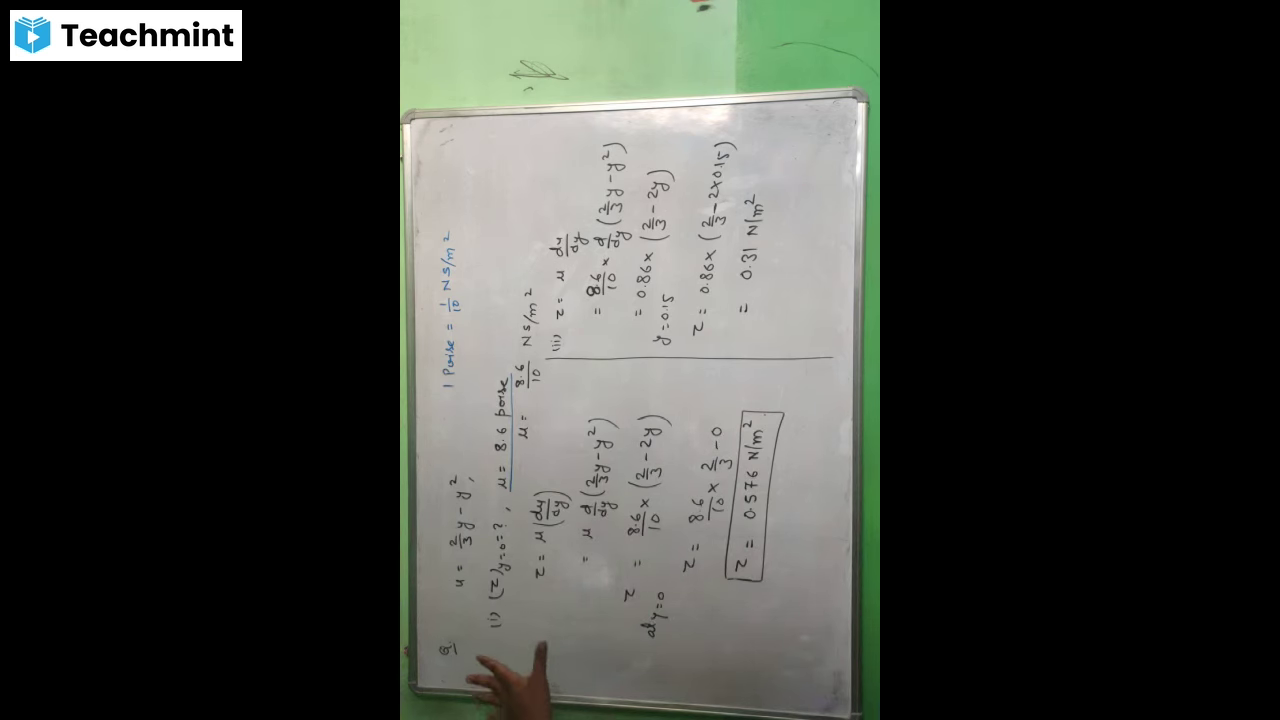 Teachmint
Q. u = 2/3 y - y², 1 Poise = 1/10 NS/m²
(i) (τ)y=0 = ?, μ = 8.6 poise
μ = 8.6/10 NS/m²
τ = μ(du/dy)
= μ d/dy (2/3 y - y²)
τ = 8.6/10 × (2/3 - 2y)
at y=0
τ = 8.6/10 × 2/3 - 0
τ = 0.576 N/m²
(ii) τ = μ du/dy
= 8.6/10 × d/dy (2/3 y - y²)
= 0.86 × (2/3 - 2y)
y = 0.15
τ = 0.86 × (2/3 - 2×0.15)
= 0.31 N/m²